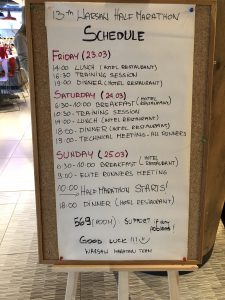 13th WARSAW HALF MARATHON
SCHEDULE
FRIDAY (23.03)
14:00 LUNCH (HOTEL RESTAURANT)
16:30 TRAINING SESSION
19:00 DINNER (HOTEL RESTAURANT)
SATURDAY (24.03)
6:30-10:00 BREAKFAST (HOTEL RESTAURANT)
10:30 - TRAINING SESSION
14:00 - LUNCH (HOTEL RESTAURANT)
18:00 - DINNER (HOTEL RESTAURANT)
19:00 - TECHNICAL MEETING - ALL RUNNERS
SUNDAY (25.03)
6:30 - 10:00 BREAKFAST (HOTEL RESTAURANT)
9:00 - ELITE RUNNERS MEETING
10:00 HALF MARATHON STARTS!
18:00 DINNER (HOTEL RESTAURANT)
569 (ROOM) SUPPORT if any problems!
GOOD LUCK !!!
WARSAW MARATHON TEAM